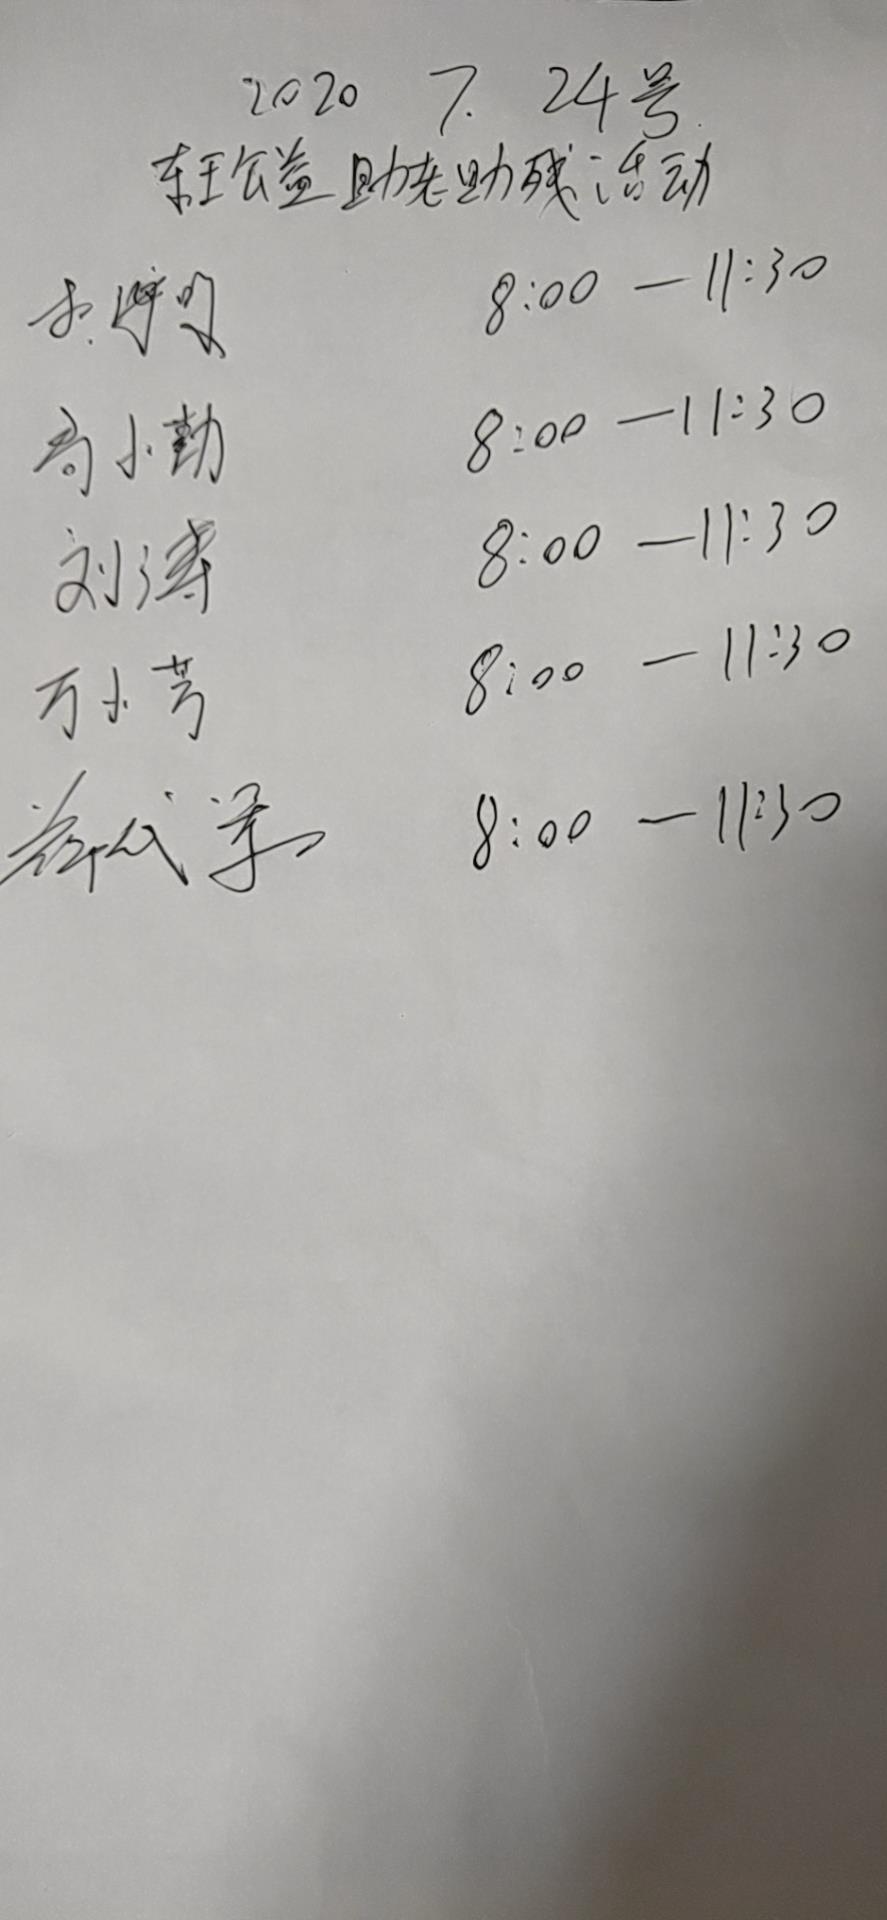 2020 7. 24号
东王公益助老助残活动
8:00 — 11:30
高小勤 8:00 — 11:30
刘涛 8:00 — 11:30
万小芳 8:00 — 11:30
8:00 — 11:30